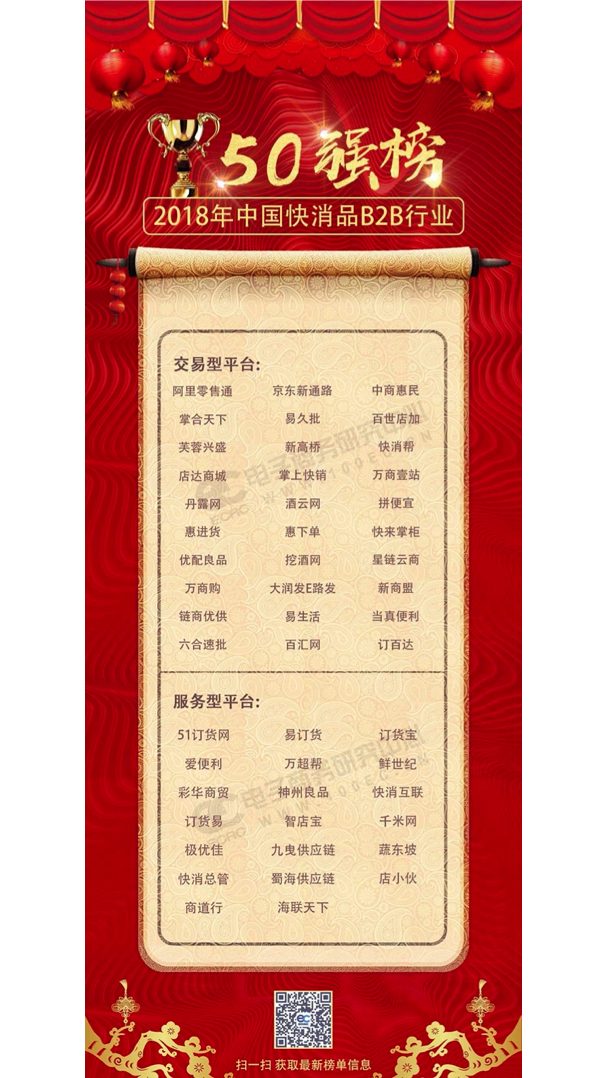 50强榜
2018年中国快消品B2B行业
交易型平台:
阿里零售通 京东新通路 中商惠民
掌合天下 易久批 百世店加
芙蓉兴盛 新高桥 快消帮
店达商城 掌上快销 万商壹站
丹露网 酒云网 拼便宜
惠进货 惠下单 快来掌柜
优配良品 挖酒网 星链云商
万商购 大润发E路发 新商盟
链商优供 易生活 当真便利
六合速批 百汇网 订百达
电子商务研究中心
WWW.100EC.CN
服务型平台:
51订货网 易订货 订货宝
爱便利 万超帮 鲜世纪
彩华商贸 神州良品 快消互联
订货易 智店宝 千米网
极优佳 九曳供应链 蔬东坡
快消总管 蜀海供应链 店小伙
商道行 海联天下
电子商务研究中心
WWW.100EC.CN
扫一扫 获取最新榜单信息